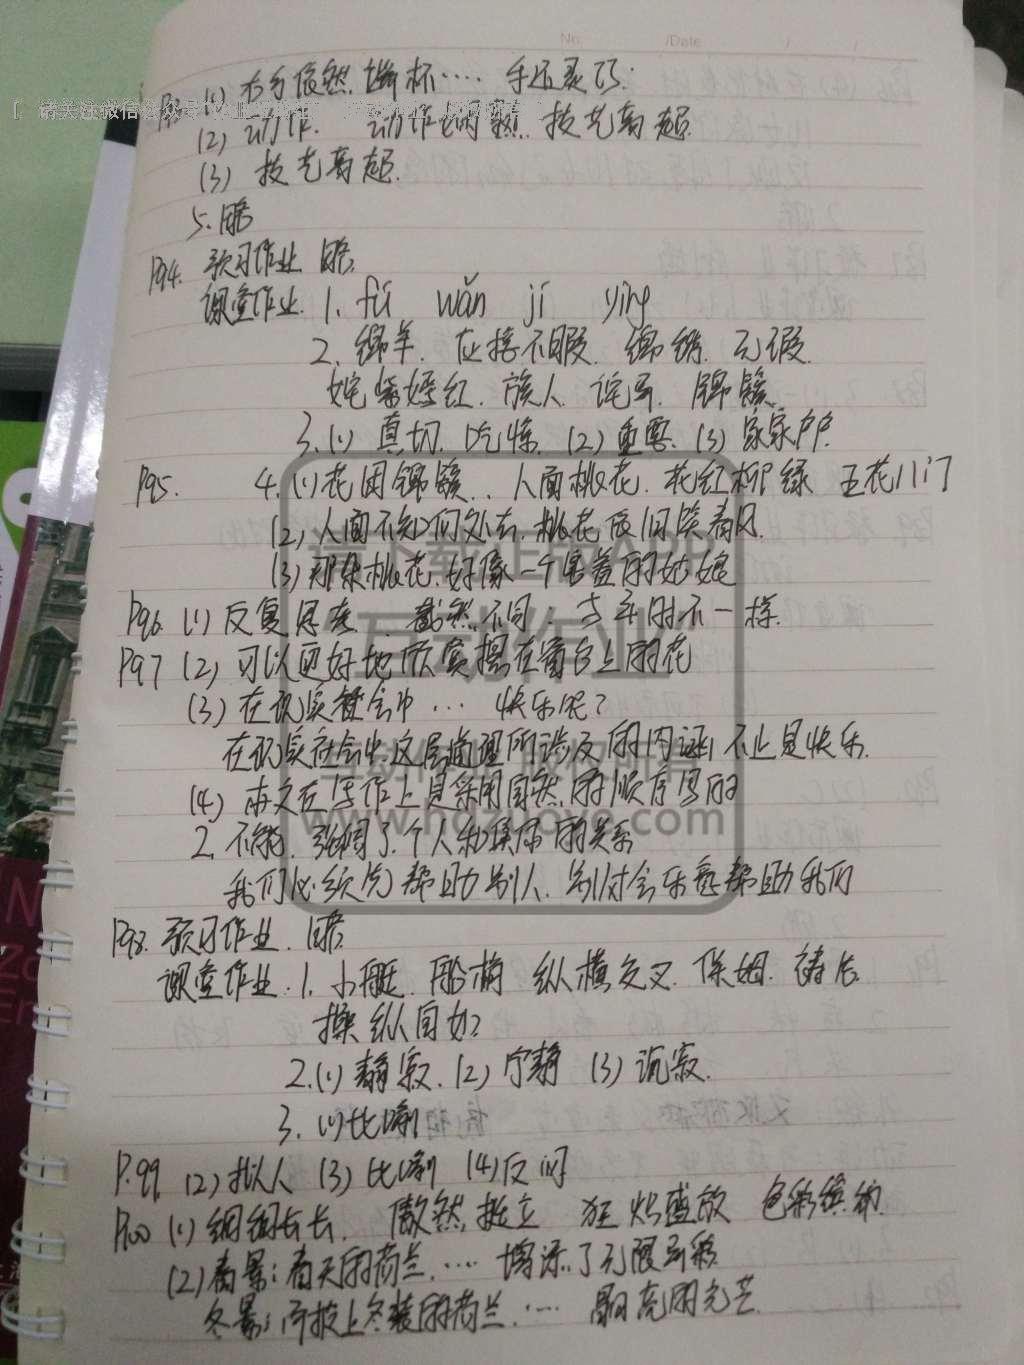 No.　　/Date　　/　　/
P93 (1) 右手依然端杯…… 手还灵巧;
(2) 动作. 动作娴熟. 技艺高超.
(3) 技艺高超.
5. 略
P94. 预习作业 略.
课堂作业. 1. fú wǎn jí yíng
2. 绵羊. 应接不暇. 锦绣. 无瑕.
姹紫嫣红. 族人. 诧异. 锦簇.
3. (1) 真切. (2) 重要. (3) 家家户户.
P95. 4. (1) 花团锦簇.. 人面桃花. 花红柳绿 五花八门
(2) 人面不知何处去, 桃花依旧笑春风.
(3) 那朵桃花, 好像一个害羞的姑娘
P96 (1) 反复 截然不同; 与 不一样.
P97 (2) 可以更好地欣赏摆在窗台上的花
(3) 在现实社会中… 快乐呢?
在现实社会中, 这层道理所涉及的内 不止是快乐.
(4) 本文在写作上是采用自然的顺序写的
2. 不能. 强调了个人和集体的关系
我们必须先帮助别人. 别人才会乐意帮助我们
P98. 预习作业. 略
课堂作业. 1. 小艇. 船梢 纵横交叉. 保姆. 祷告.
操纵自如?
2. (1) 静寂. (2) 宁静 (3) 沉寂.
3. (1) 比喻
P.99. (2) 拟人 (3) 比喻 (4) 反问
P100 (1) 细细长长. 傲然挺立 狂 盛放 色彩缤纷.
(2) 春景: 春天的荷兰…… 增添了无限
冬景: 而披上冬装的荷兰…… 的光芒.
请下载上印APP
互动作业
互动作业 版权所有